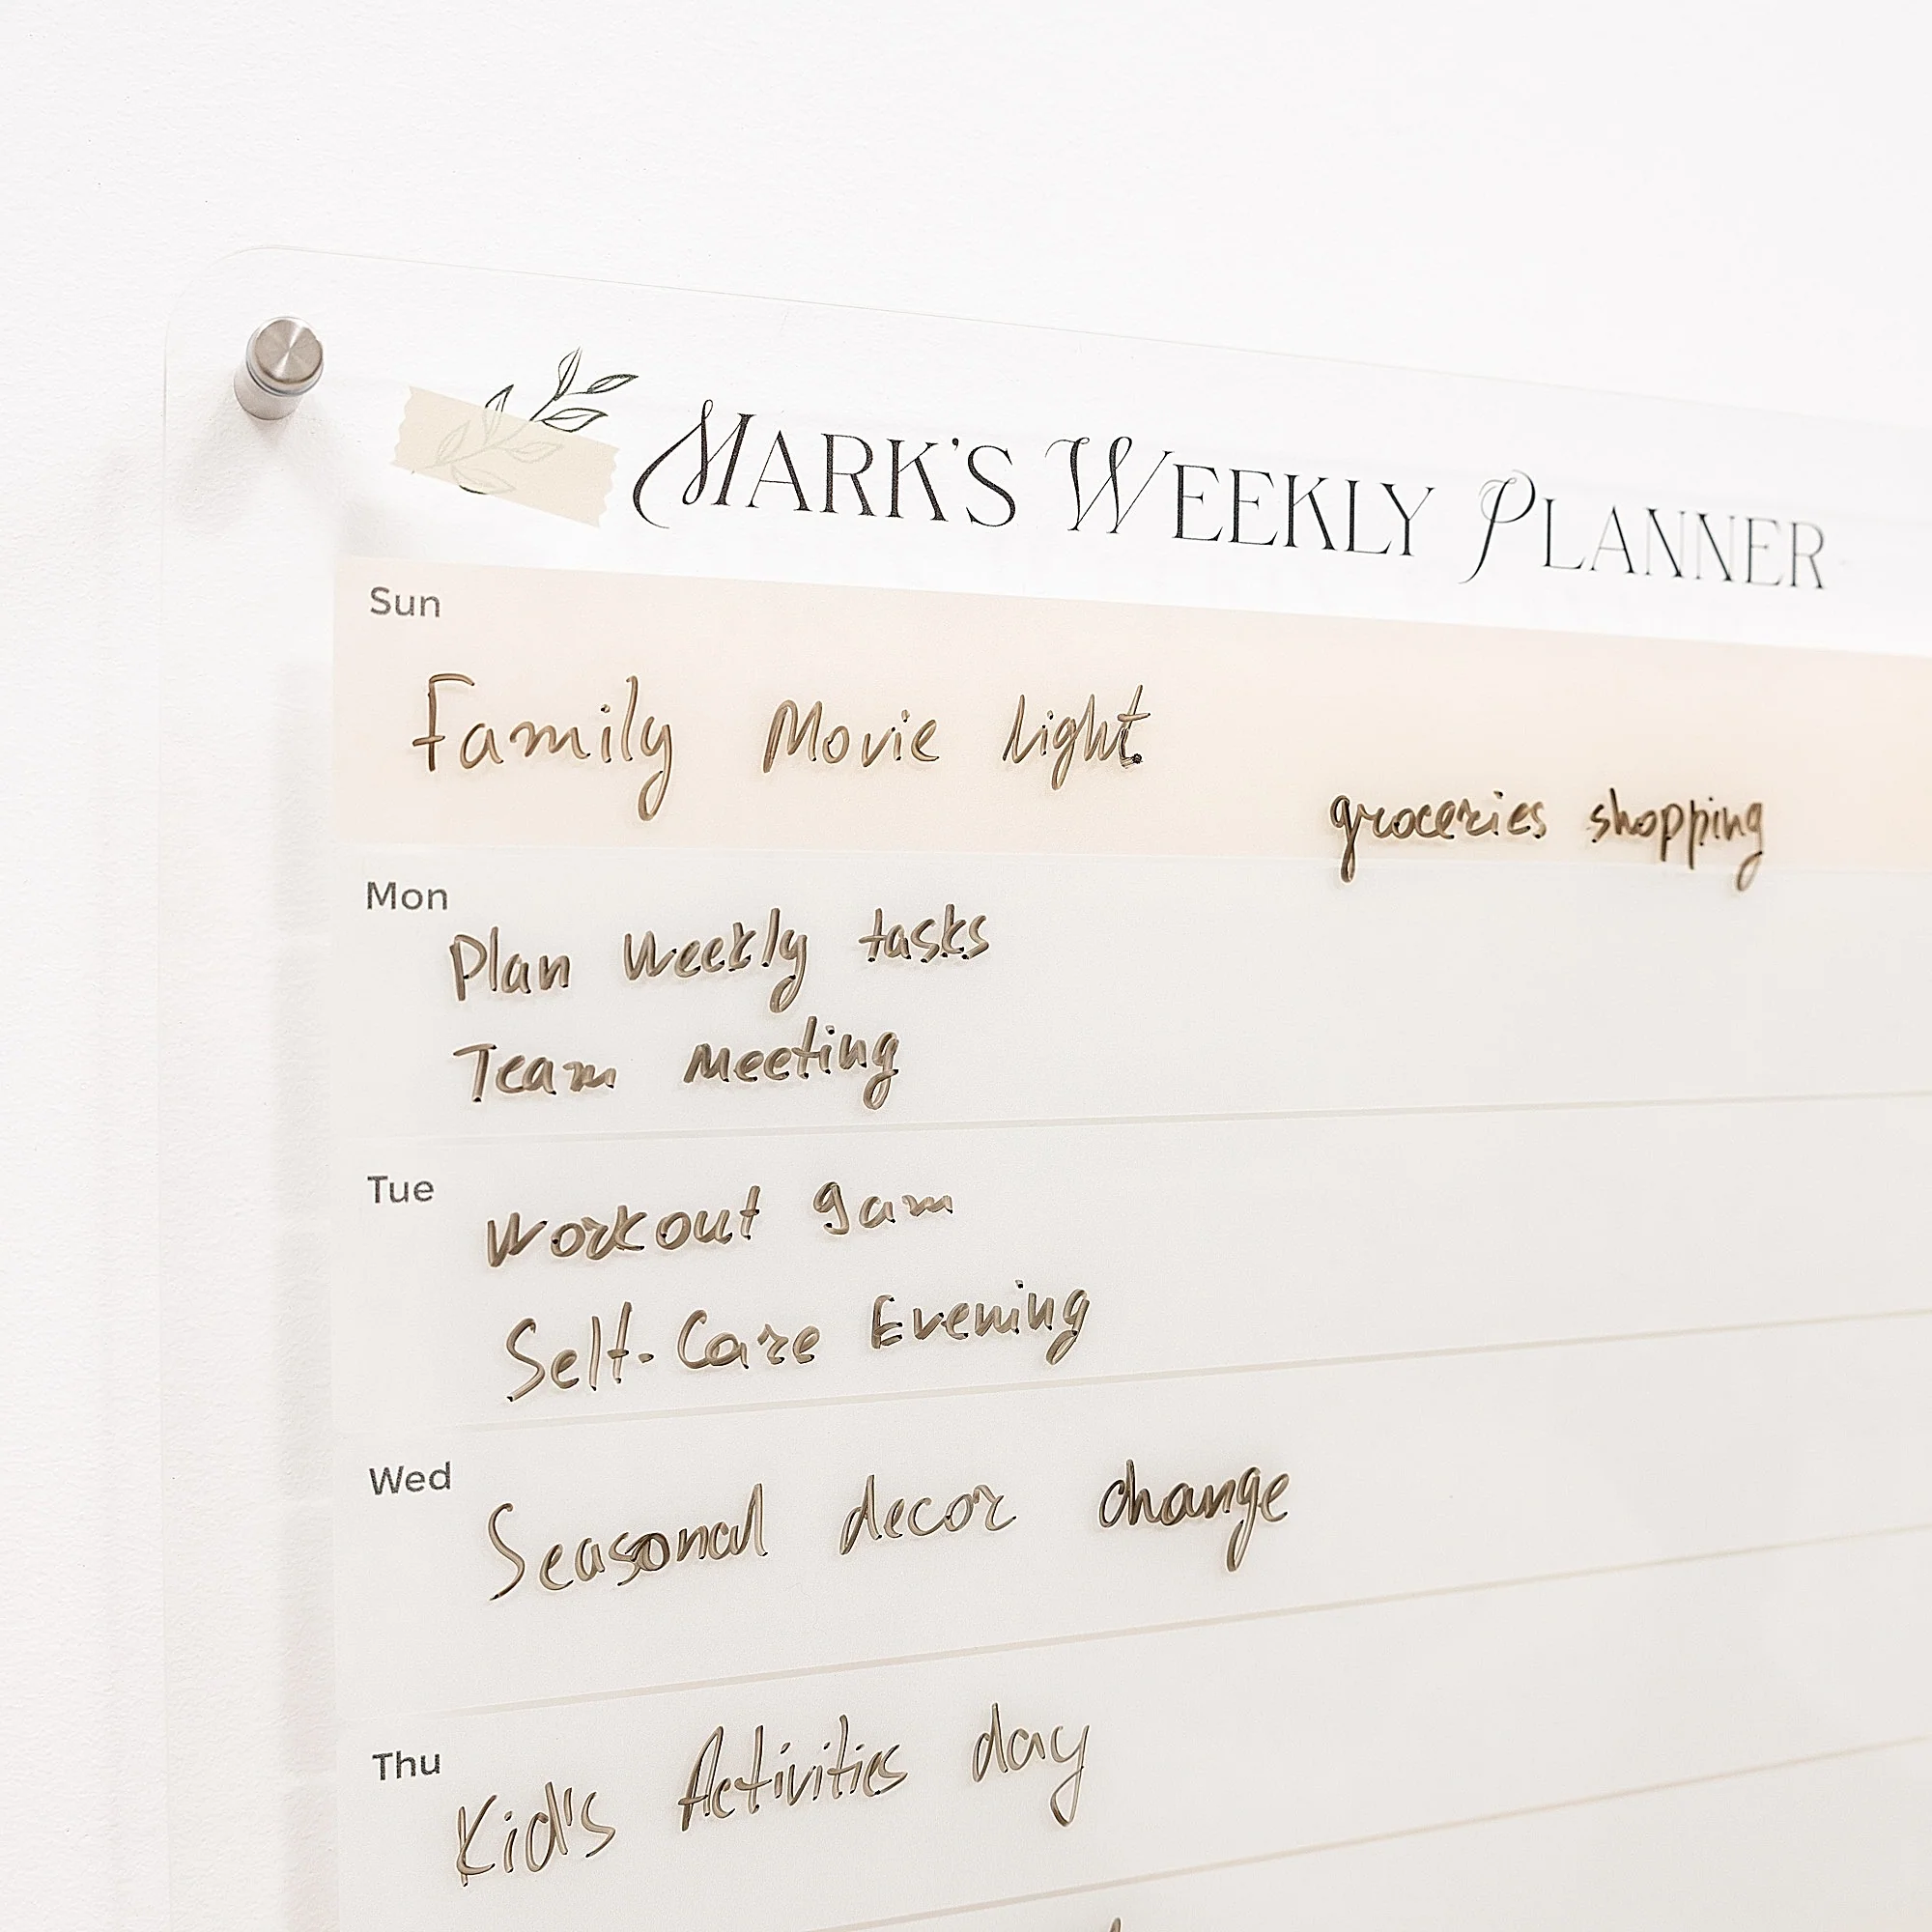 MARK'S WEEKLY PLANNER
Sun
Family Movie Light
groceries shopping
Mon
Plan Weekly tasks
Team Meeting
Tue
Workout 9am
Self-Care Evening
Wed
Seasonal decor change
Thu
Kid's Activities day